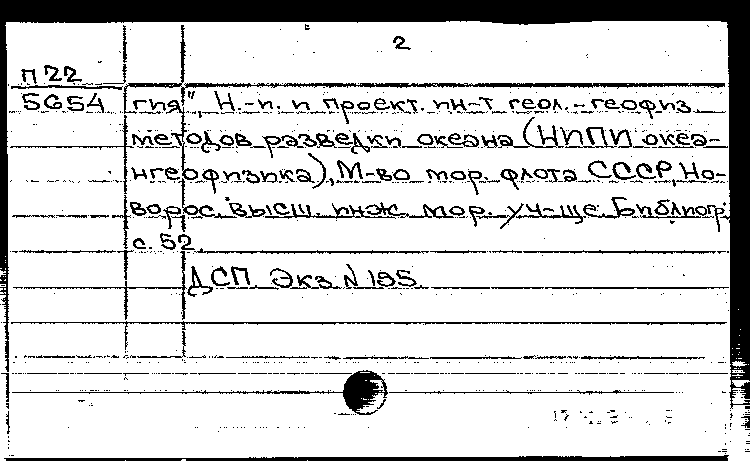 2
П22
5654 гия", Н.-п. и проект. ин-т геол.-геофиз.
методов разведки океана (НИПИ океа-
нгеофизика), М-во мор. флота СССР, Но-
ворос. высш. инж. мор. уч-ще. Библиогр:
с. 52.
ДСП. Экз. N 195.